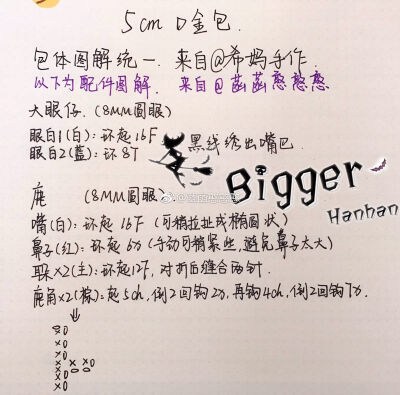 5cm口金包.
包体图解统一.来自@希妈手作.
以下为配件图解.来自@菡菡憨憨憨
大眼仔.(8MM圆眼)
眼白1(白):环起16F
眼白2(蓝):环8T
黑线绣出嘴巴.
Bigger
Hanhan
鹿 (8MM圆眼)
嘴(白):环起16F(可稍拉扯成椭圆状)
鼻子(红):环起6x(手动可稍紧些,避免鼻子太大)
耳朵x2(主):环起12F,对折后缝合两针.
鹿角x2(棕):起5ch,倒2回钩2x,再钩4ch,倒2回钩7x.
x0
x0
x0
x0
xx x0
x0
x0